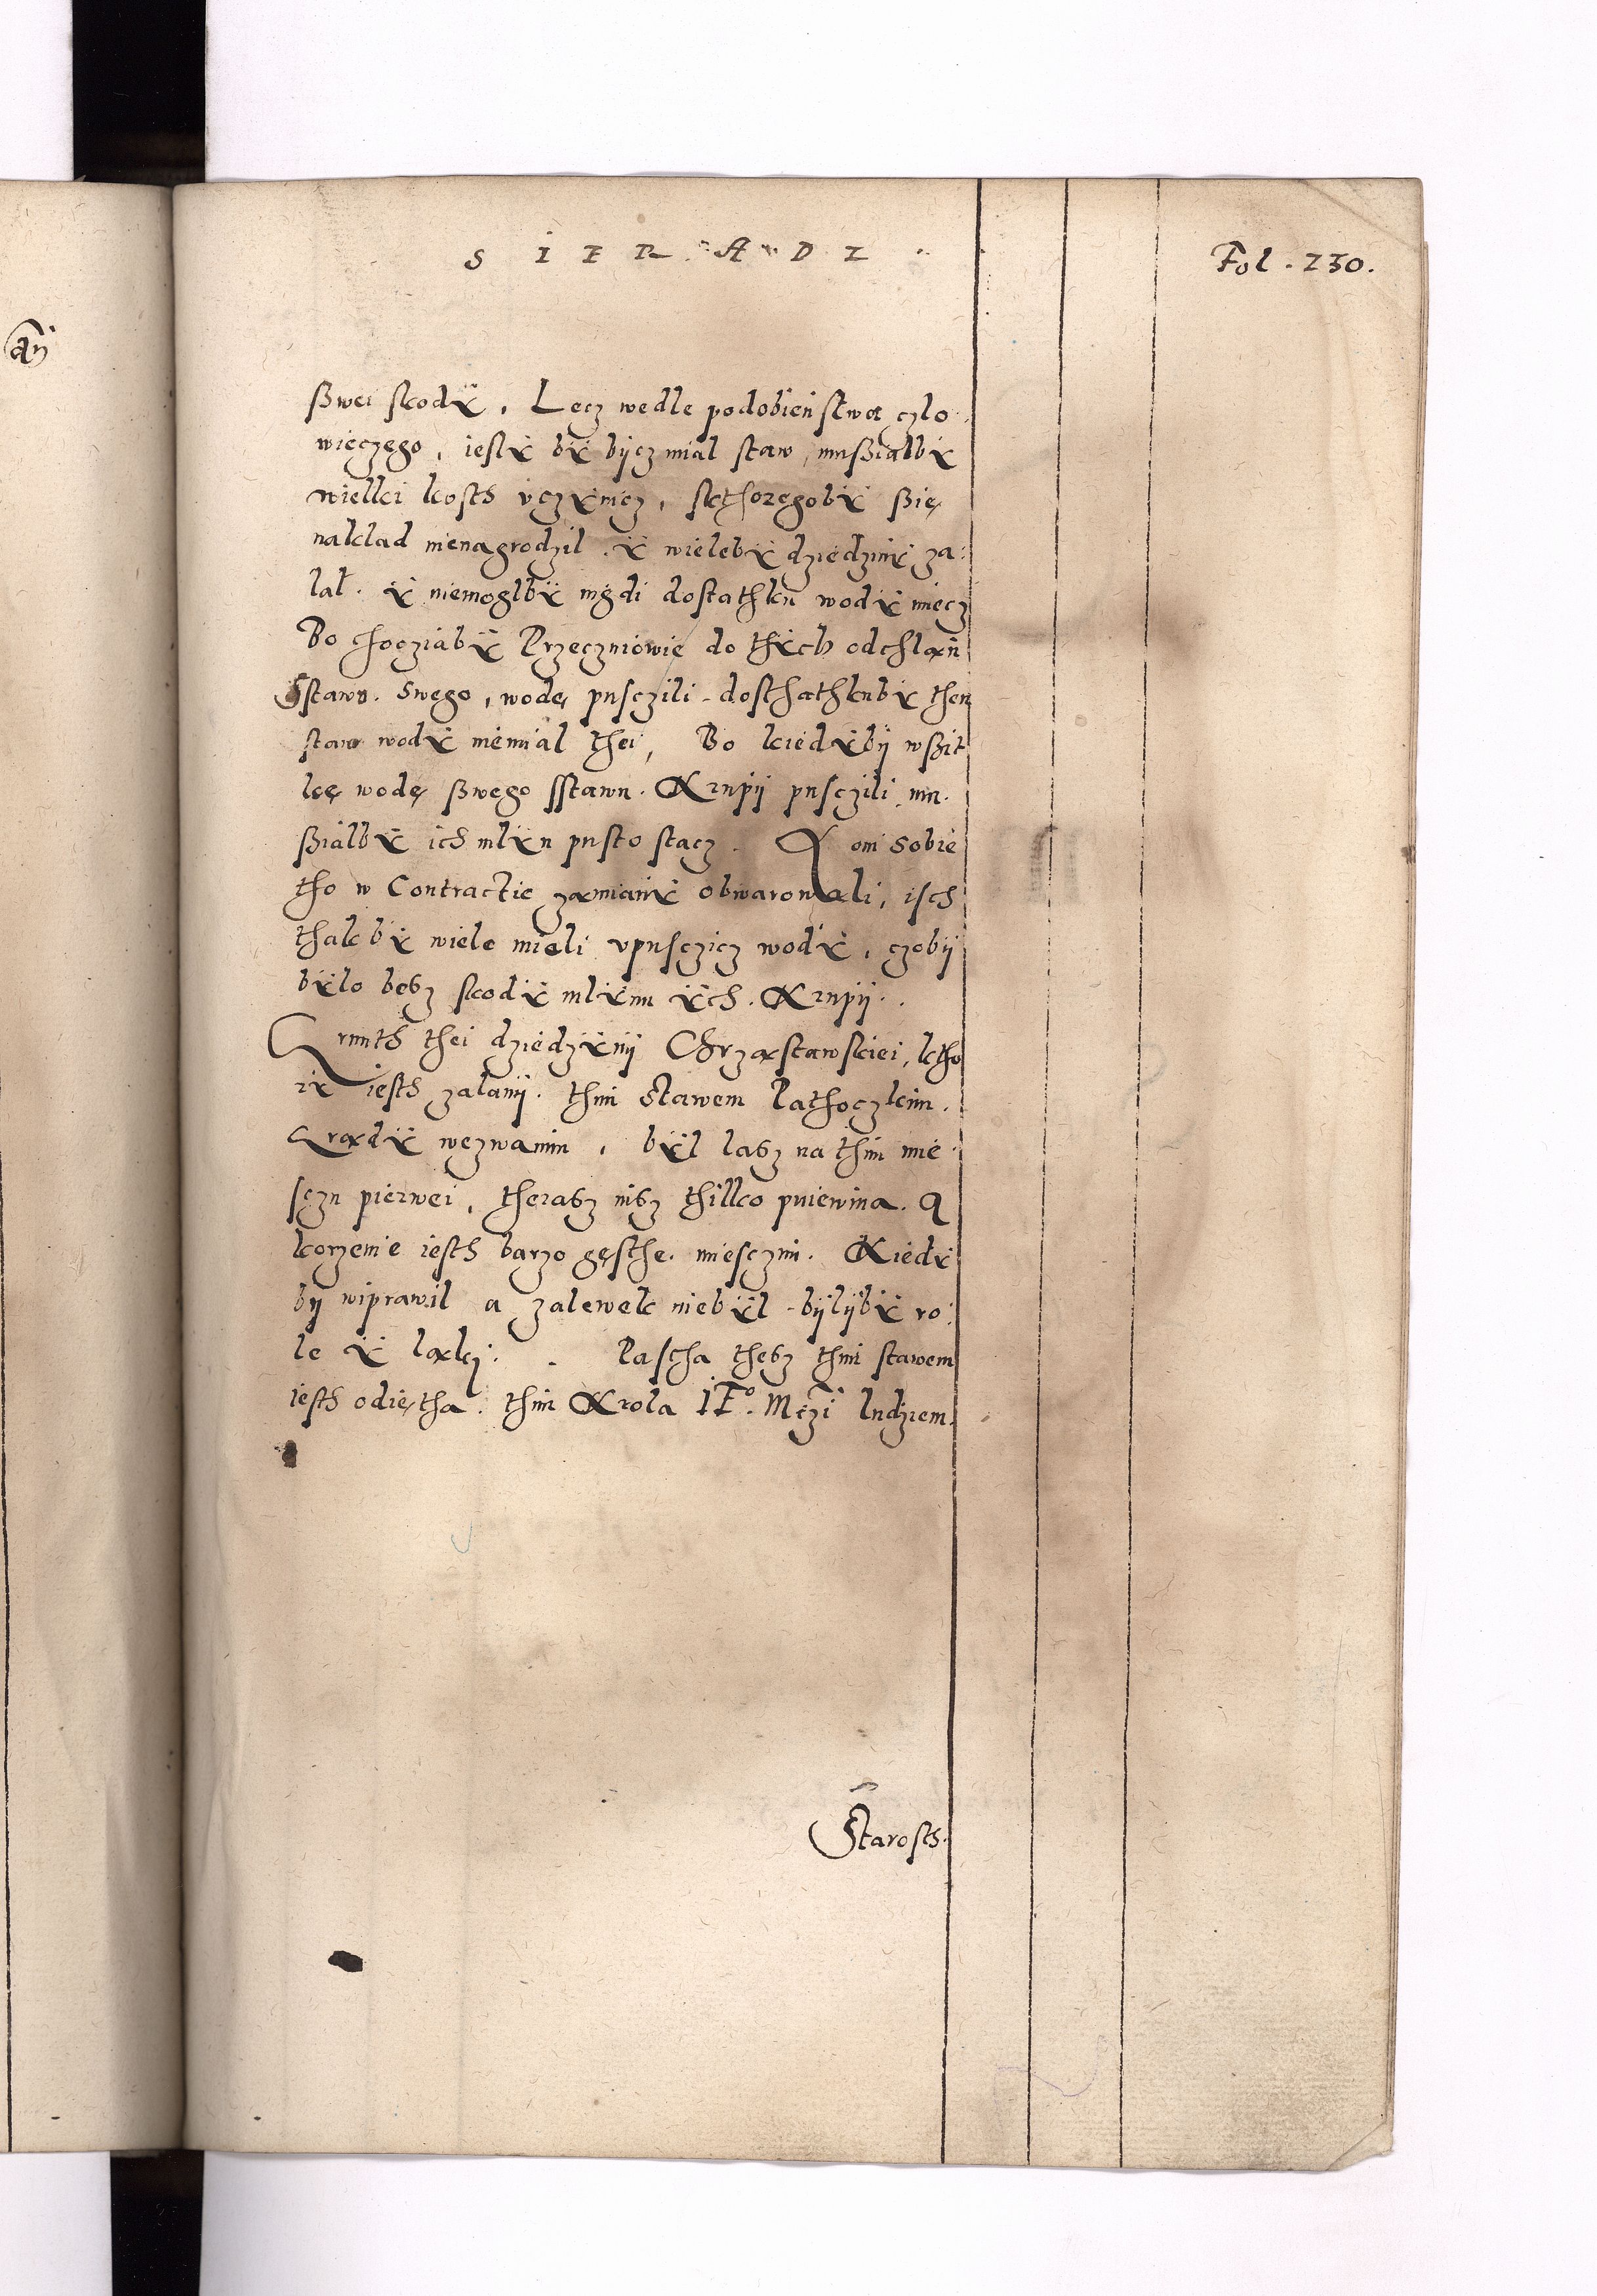 SIERADZ
Fol. 230.
ßwei skodÿ, Lecz wedle podobieństwa czlo
wieczego, ieslÿ bÿ bijcz mial staw, mußialbÿ
wielki kosth vczÿnicz, skthoregobÿ ßię
naklad nienagrodzil. ÿ wielebÿ dziedzinÿ za:
lał. ÿ niemoglbÿ nigdi dostathku wodÿ miecz
Bo chocziabÿ Przeczniowie do thÿch odchlań
Sstawu. Swego, wodę pusczili dosthathkubÿ then
staw wodÿ niemial thei, Bo kiedÿbij wßit
kę wodę ßwego sstawu. Krupij pusczili mu.
ßialbÿ ich mlÿn pusto stacz. A oni sobie
tho w Contractie zamianÿ obwarowali, isch
thak bÿ wiele mieli vpusczicz wodÿ, czobij
bÿlo besz skodÿ mlÿnu ÿch. Krupij.
Grunth thei dziedzÿnij Chrząstawskiei, ktho
rÿ iesth zalanij. thim stawem Pathoczkim.
Grądÿ wezwaniu, bÿl lasz na thim mie
sczu pierwei, therasz nisz thilko pniewina. A
korzenie iesth barzo gęsthe. miesczmi. Kiedÿ
bij wiprawil a zalewek niebÿl bijlijbÿ ro:
le ÿ ląki. Pascha thesz thim stawem
iesth odiętha. thim Krola JE°. Mczi ludziem.
Starosth.